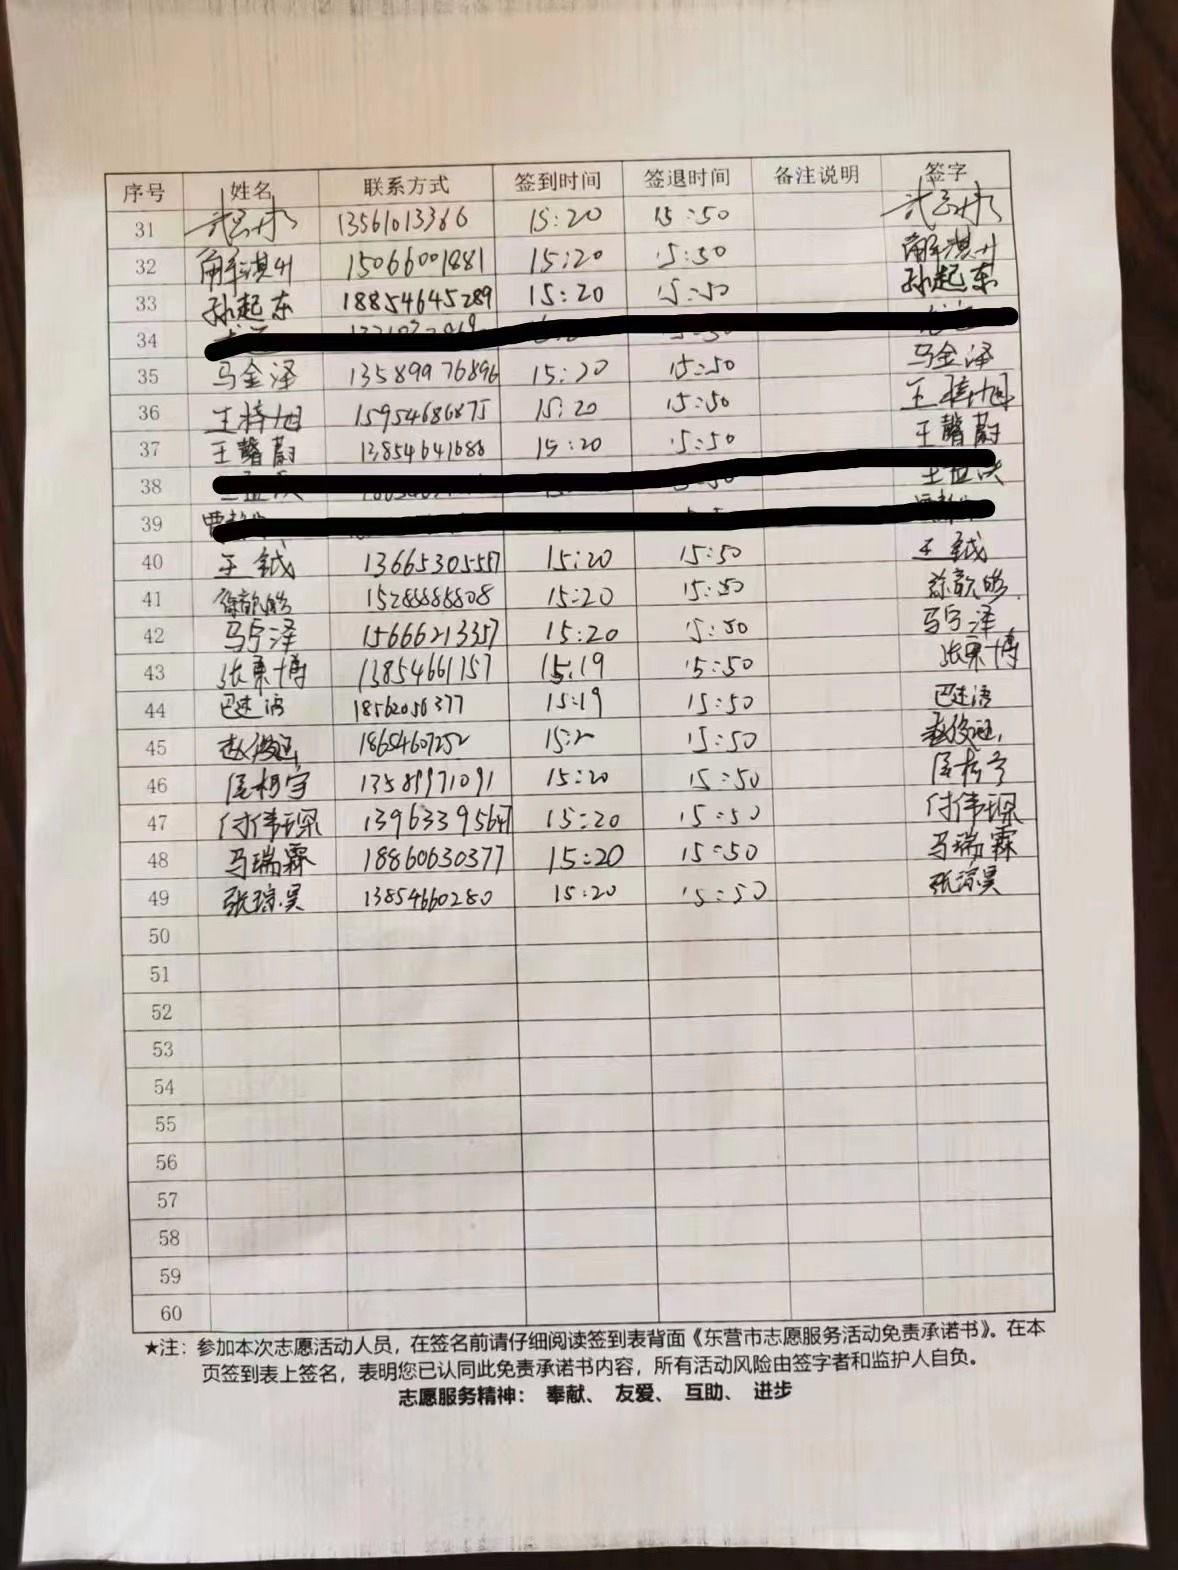 序号 姓名 联系方式 签到时间 签退时间 备注说明 签字
31 13561013366 15:20 15:50
32 解淇州 15066001881 15:20 15:50 解淇州
33 孙起东 18854645289 15:20 15:50 孙起东
34
35 马金泽 13589976896 15:20 15:50 马金泽
36 王梓旭 15954686875 15:20 15:50 王梓旭
37 王馨蔚 13854641688 15:20 15:50 王馨蔚
38
39
40 王钺 13665305557 15:20 15:50 王钺
41 15288888808 15:20 15:50
42 马宁泽 15666213357 15:20 15:50 马宁泽
43 张秉博 13854661757 15:19 15:50 张秉博
44 18562056377 15:19 15:50
45 赵俊涵 18654607252 15:50
46 13589971091 15:20 15:50
47 付伟琛 13963395647 15:20 15:50 付伟琛
48 马瑞霖 18860630377 15:20 15:50 马瑞霖
49 张琼昊 13854660280 15:20 15:50 张琼昊
50
51
52
53
54
55
56
57
58
59
60
★注：参加本次志愿活动人员，在签名前请仔细阅读签到表背面《东营市志愿服务活动免责承诺书》。在本
页签到表上签名，表明您已认同此免责承诺书内容，所有活动风险由签字者和监护人自负。
志愿服务精神： 奉献、 友爱、 互助、 进步